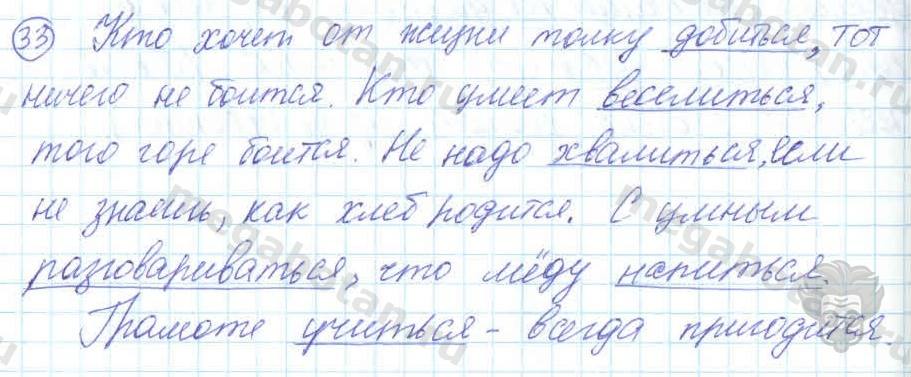 33 Кто хочет от жизни толку добиться, тот
ничего не боится. Кто умеет веселиться,
того горе боится. Не надо хвалиться, если
не знаешь, как хлеб родится. С умным
разговариваться, что мёду напиться
Грамоте учиться - всегда пригодится.
megabotan.ru